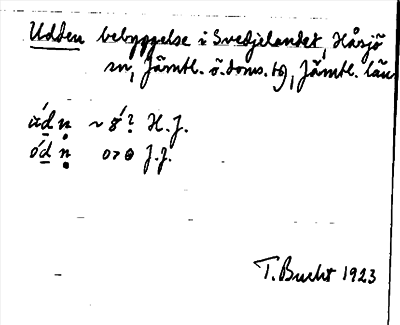 Udden bebyggelse i Svedjelandet, Håsjö
sn, Jämtl. ö. doms. tg, Jämtl. län
ú̱dṇ ~ 8́? H. J.
ó̱dṇ o>ɵ J. J.
T. Bucht 1923